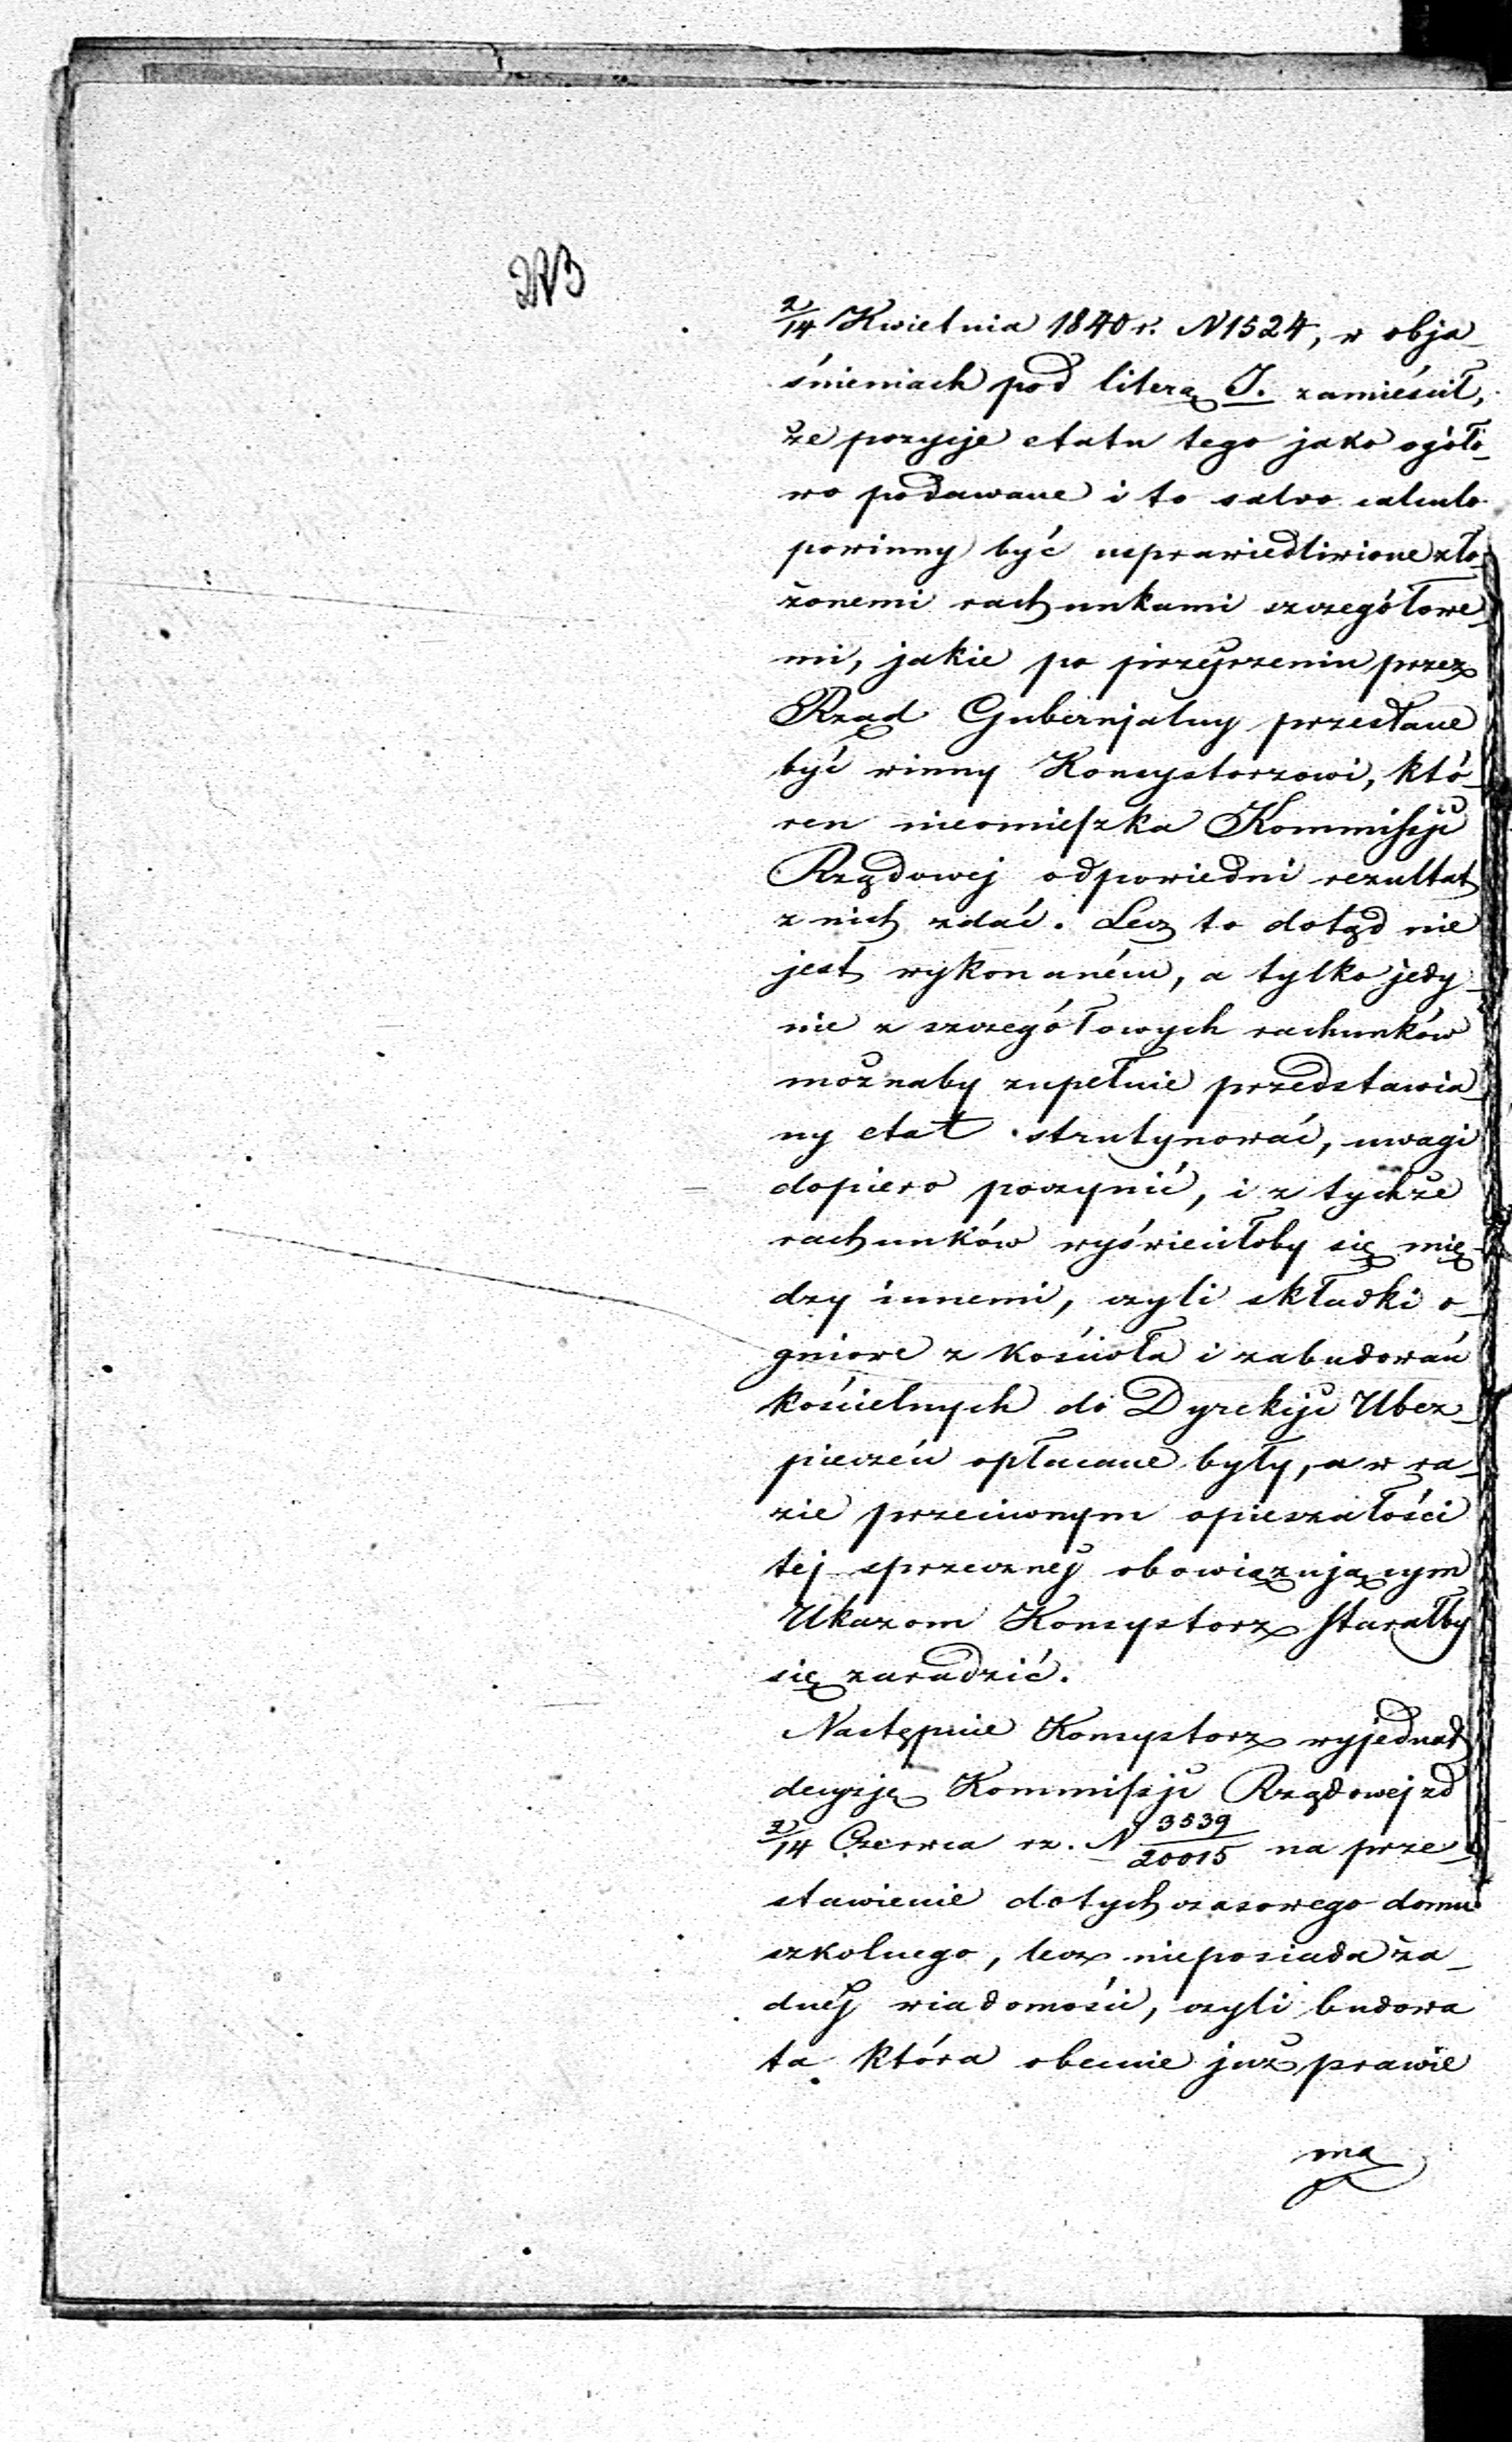 2/14 Kwietnia 1840 r. N 1524, w obja_
śnieniach pod literą J. zamieścił,
że pozycje etatu tego jako ogóło_
wo podawane i to salvo calculo
powinny być usprawiedliwione zło_
żonemi rachunkami szczegółowe_
mi, jakie po przejrzeniu przez
Rząd Gubernjalny przesłane
być winny Konsystorzowi, któ_
ren nieomieszka Kommissji
Rządowej odpowiedni rezultat
z nich zdać. Lecz to dotąd nie
jest wykonaném, a tylko jedy_
nie z szczegółowych rachunków
możnaby zupełnie przedstawia_
ny etat strutynować, uwagi
dopiero poczynić, i z tychże
rachunków wyświeciłoby się mię_
dzy innemi, czyli składki o_
gniowe z kościoła i zabudowań
kościelnych do Dyrekcji Ubez_
pieczeń opłacane były, a w ra_
zie przeciwnym opieszałości
tej sprzecznej obowiązującym
Ukazom Konsystorz starałby
się zaradzić.
Następnie Konsystorz wyjednał
decyzję Kommissji Rządowej zd
2/14 Czerwca rz. N 3539/20015 na prze_
stawienie dotychczasowego domu
szkolnego, lecz nieposiada ża_
dnej wiadomości, czyli budowa
ta która obecnie już prawie
ma